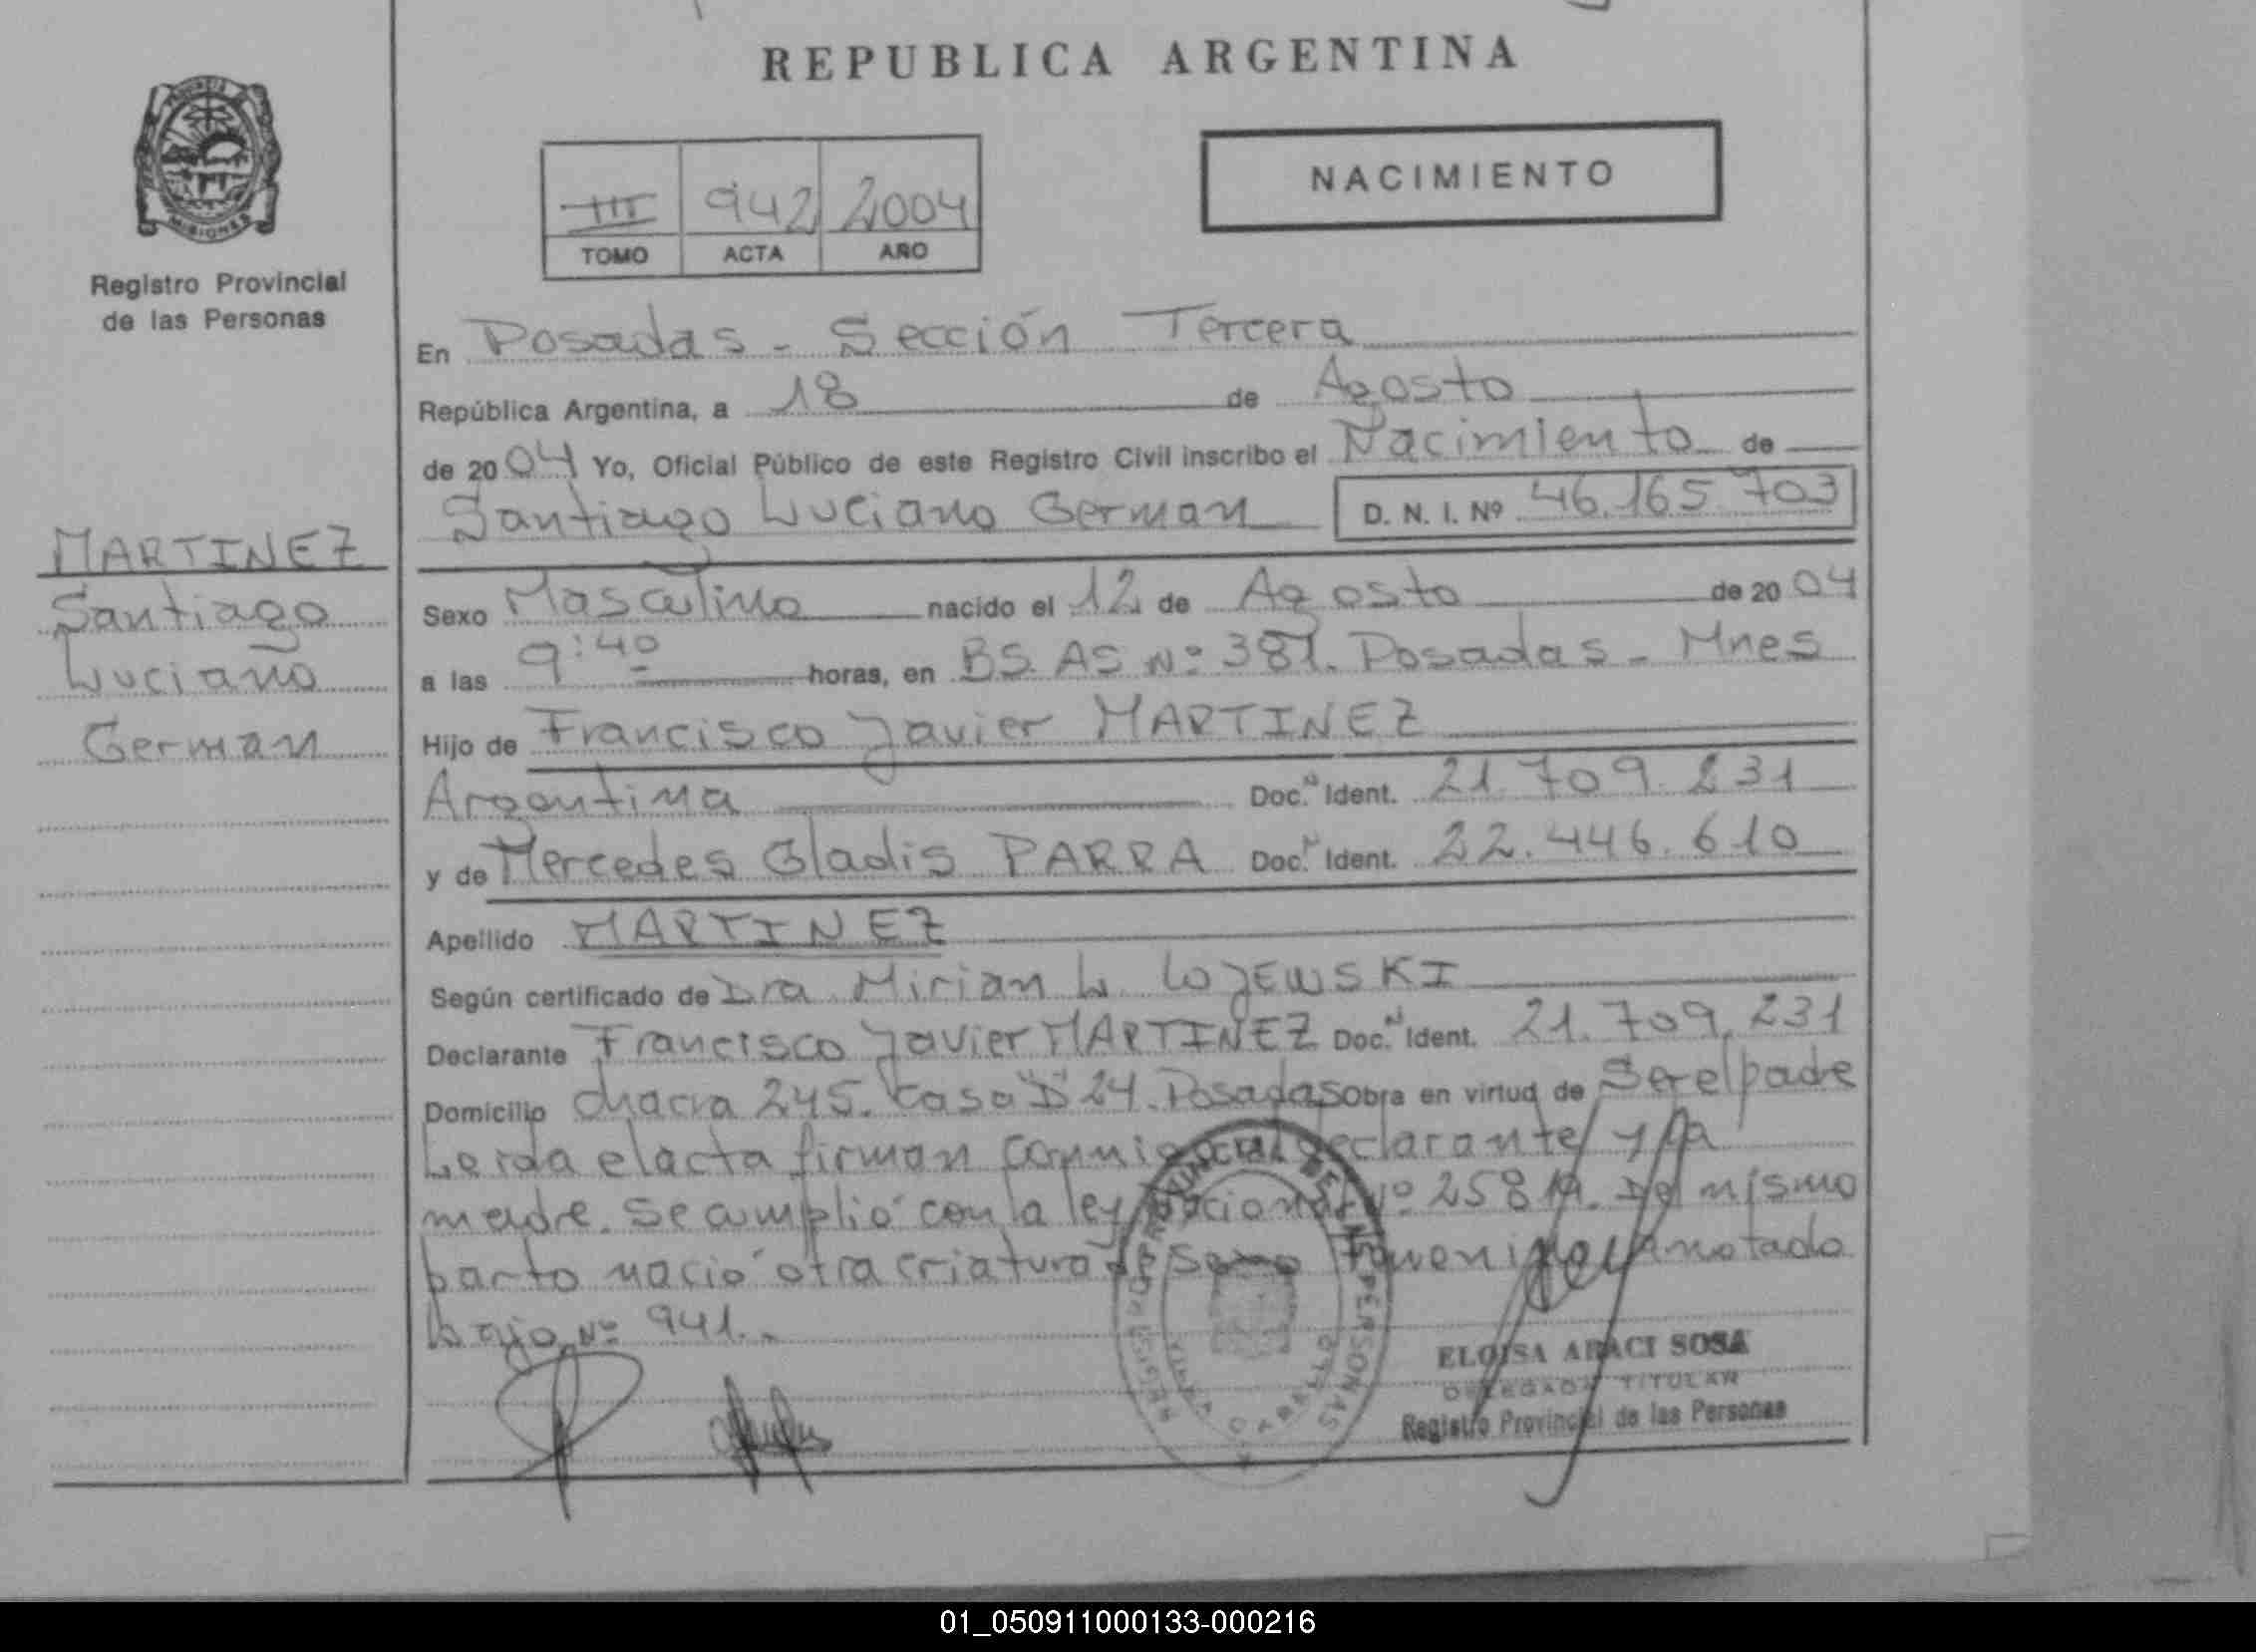 REPUBLICA ARGENTINA
PROVINCIA DE
MISIONES
Registro Provincial
de las Personas
III 942 2004
TOMO ACTA AÑO
NACIMIENTO
MARTINEZ
Santiago
Luciano
German
En Posadas - Sección Tercera
República Argentina, a 18 de Agosto
de 2004 Yo, Oficial Público de este Registro Civil inscribo el Nacimiento de
Santiago Luciano German D. N. I. Nº 46.165.703
Sexo Masculino nacido el 12 de Agosto de 2004
a las 9:40 horas, en BS. AS Nº 381. Posadas - Mnes
Hijo de Francisco Javier MARTINEZ
Argentina Doc. N Ident. 21.709.231
y de Mercedes Gladis PARRA Doc. N Ident. 22.446.610
Apellido MARTINEZ
Según certificado de Dra Mirian L. LOJEWSKI
Declarante Francisco Javier MARTINEZ Doc. N Ident. 21.709.231
Domicilio chacra 245. Casa "D" 24. Posadas obra en virtud de Ser el padre
Leida el acta firman conmigo el declarante y la
madre. Se cumplió con la ley Nacional Nº 25819. Del mismo
parto nació otra criatura de sexo Femenino anotado
bajo Nº 941.
ELOISA ARACI SOSA
DELEGADA TITULAR
Registro Provincial de las Personas
01_050911000133-000216